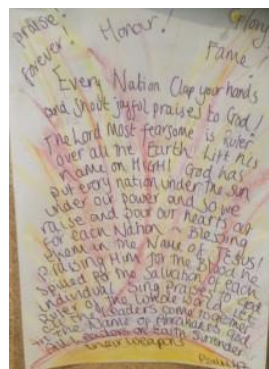 praise! Honour! Glory
forever! Fame!
Every Nation Clap your hands
and shout joyful praises to God!
The Lord most fearsome is Ruler
over all the Earth Lift His
name on HIGH! God has
put every nation under the sun
under our power and so we
praise and pour our hearts out
for each Nation ~ Blessing
them in the Name of JESUS!
Praising Him for the Blood he
spilled for the Salvation of each
individual Sing Praise to God
Ruler of the Whole World. Let
Leaders come together
in the Name of Abrahams God
all Leaders on Earth Surrender
their weapons